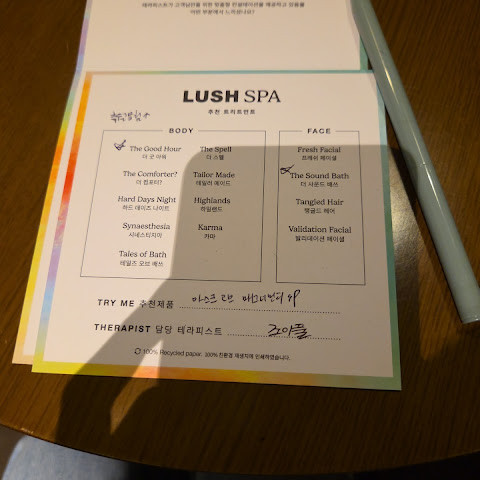 테라피스트가 고객님만을 위한 맞춤형 컨설테이션을 제공하고 있음을
어떤 부분에서 느끼셨나요?
LUSH SPA
추천 트리트먼트
BODY
The Good Hour
더 굿 아워
The Comforter?
더 컴포터?
Hard Days Night
하드 데이즈 나이트
Synaesthesia
시네스티지아
Tales of Bath
테일즈 오브 배쓰
The Spell
더 스펠
Tailor Made
테일러 메이드
Highlands
하일랜드
Karma
카마
FACE
Fresh Facial
프레쉬 페이셜
The Sound Bath
더 사운드 배쓰
Tangled Hair
탱글드 헤어
Validation Facial
밸리데이션 페이셜
TRY ME 추천제품
마스크 오브
THERAPIST 담당 테라피스트
100% Recycled paper. 100% 친환경 재생지에 인쇄하였습니다.